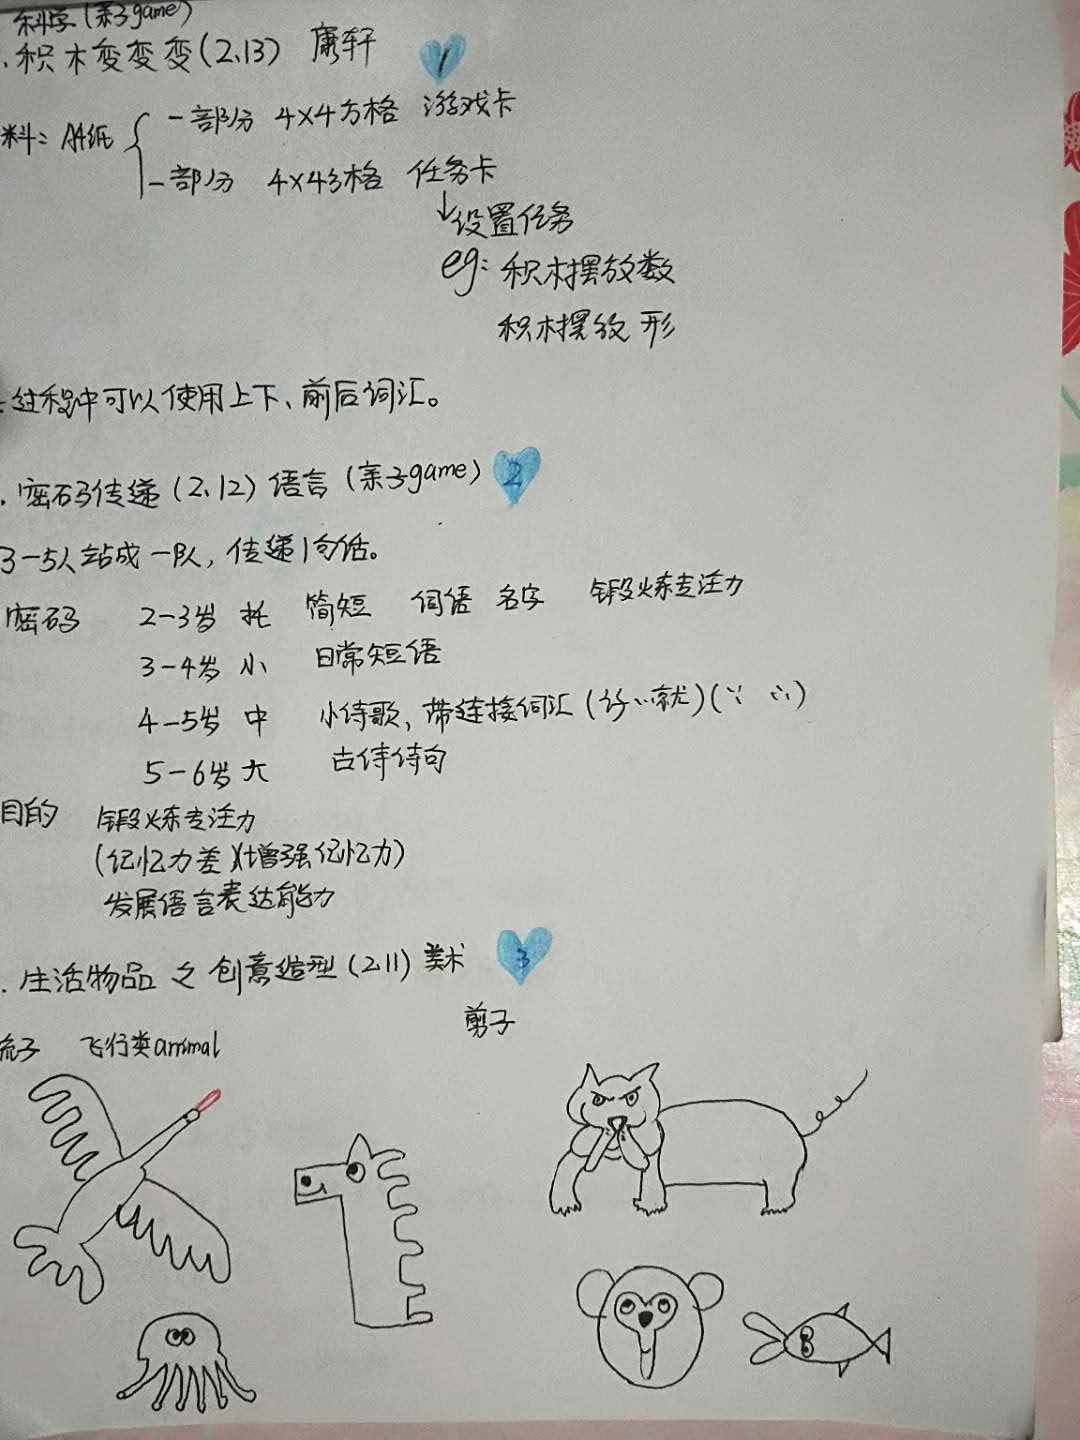 科学(亲子game)
.积木变变变(2.13) 康轩 1
料: A4纸 { 一部分 4×4方格 游戏卡
一部分 4×4方格 任务卡
↓设置任务
eg: 积木摆放数
积木摆放形
: 过程中可以使用上下、前后词汇。
.密码传递(2.12)语言(亲子game) 2
3-5人站成一队,传递1句话。
密码 2-3岁 托 简短 词语 名字 锻炼专注力
3-4岁 小 日常短语
4-5岁 中 小诗歌,带连接词汇
5-6岁 大 古诗诗句
目的 锻炼专注力
(记忆力差)(增强记忆力)
发展语言表达能力
.生活物品之创意造型(2.11)美术 3
剪子
梳子 飞行类animal